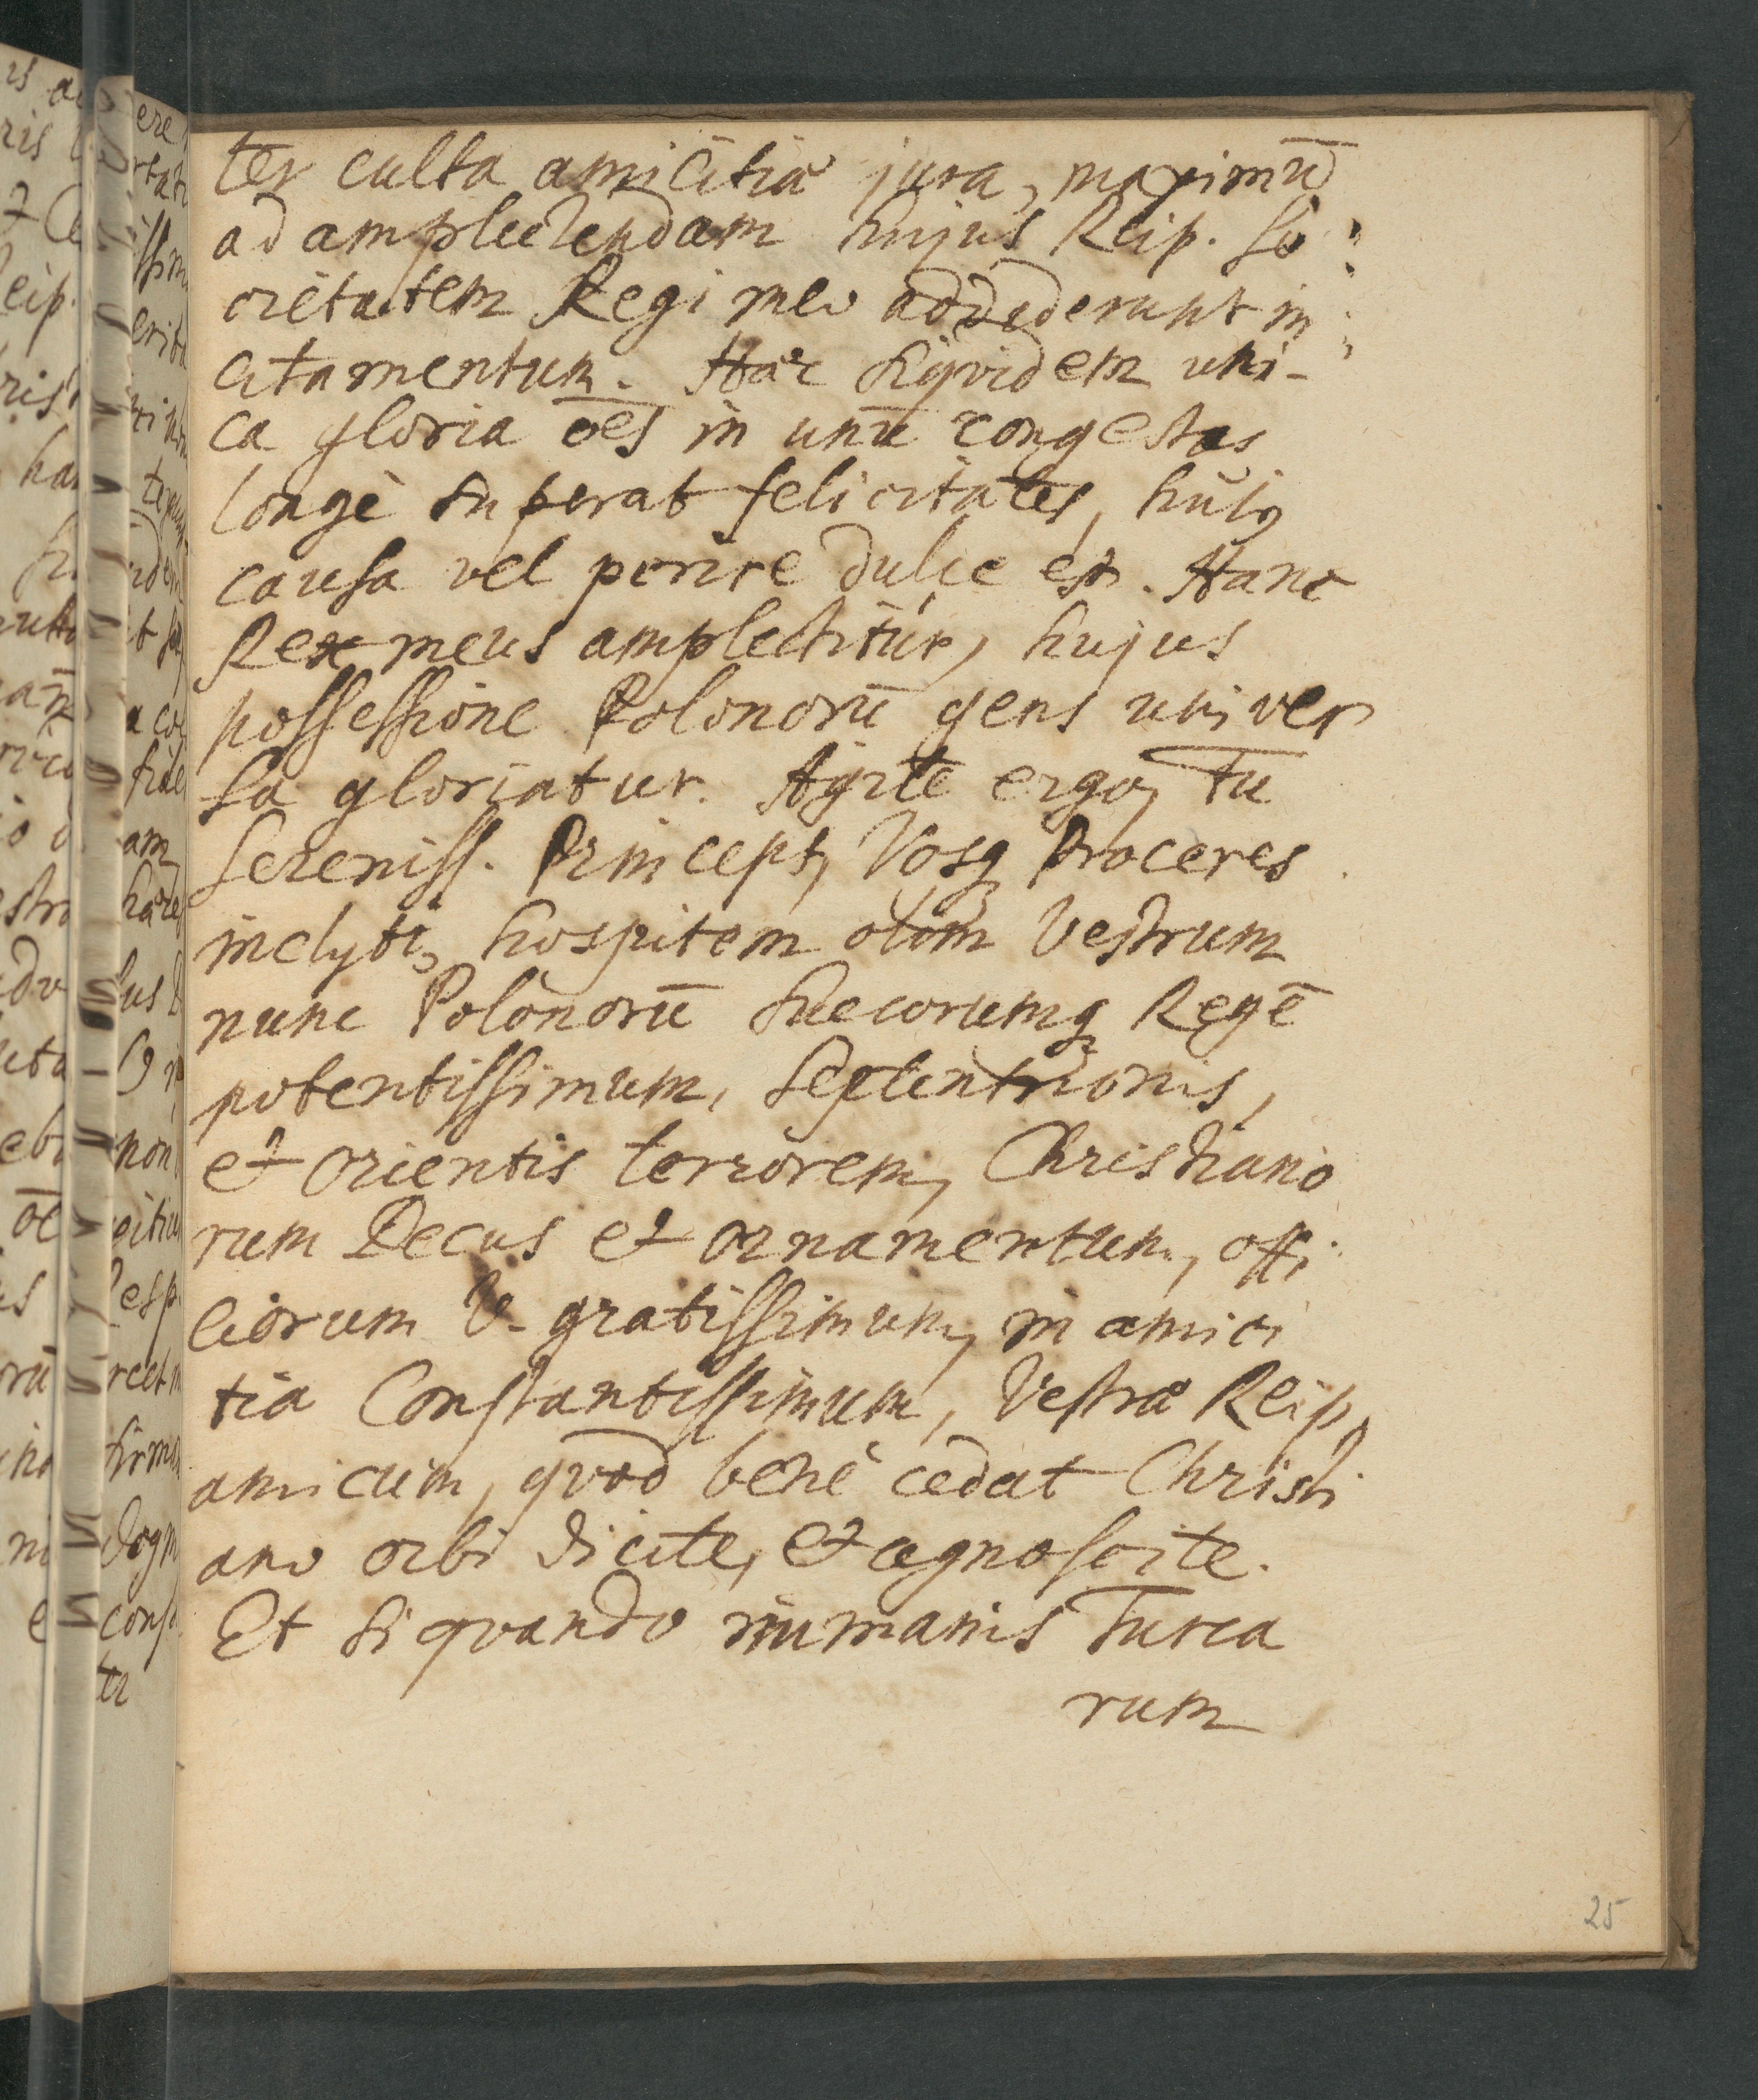 ter culta amicitiæ jura, maximū
ad amplectendam hujus Reip. so:
cietatem Regi meo addiderunt in:
citamentum. Hæc siqvidem uni-
ca gloria oēs in unū congestas
longè superat felicitates, hujꝯ
causa vel perire dulce est. Hanc
Rex meus amplectitur, hujus
possessione Polonorū gens univer
sa gloriatur. Agite ergo, Tu
Sereniss. Princeps, Vosq̢ Proceres
inclyti, hospitem olim Vestrum
nunc Polonorū Suecorumq̢ Regē
potentissimum, Septentrionis,
et orientis terrorem, Christiano
rum Decus et ornamentum, offi
ciorum V. gratissimum, in amici
tia Constantissimum, Vestræ Reip,
amicum, qvod benè cedat Christi
ano orbi dicite, et agnoscite.
Et si qvando immanis Turca
rum
25